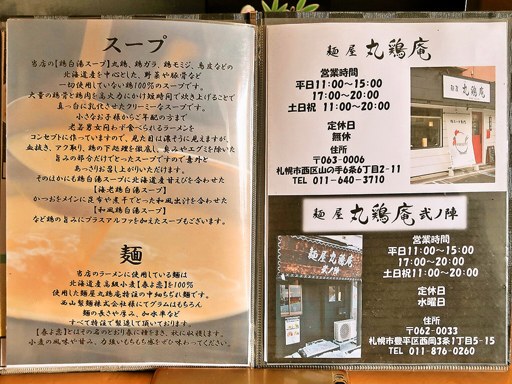 スープ
当店の【鶏白湯スープ】丸鶏、鶏ガラ、鶏モミジ、鳥皮などの
北海道産を中心とした、野菜や豚骨など
一切使用していない鶏100%のスープです。
大量の鶏骨と鶏肉を高火力にかけ短時間で炊き上げることで
真っ白に乳化させたクリーミーなスープです。
小さなお子様からご年配の方まで
老若男女問わず食べられるラーメンを
コンセプトに作っていますので、見た目は濃そうに見えますが、
血抜き、アク取り、鶏の下処理を徹底し、臭みやエグミを除いた
旨みの部分だけでとったスープですので意外と
あっさりお召し上がりいただけます。
そのほかにも鶏白湯スープに北海道産甘えびを合わせた
【海老鶏白湯スープ】
かつおをメインに昆布や煮干でとった和風出汁を合わせた
【和風鶏白湯スープ】
など鶏の旨みにプラスアルファを加えたスープもございます。
麺
当店のラーメンに
使用している麺は
北海道産高級小麦【春よ恋】を100%
使用した麺屋丸鶏庵特注の中細ちぢれ麺です。
西山製麺株式会社様にてグラムはもちろん
麺の長さや厚み、加水率など
すべて特注で製造して頂いております。
【春よ恋】とはその名のとおり春に種をまき、秋に収穫します。
小麦の風味や甘み、力強いもちもち感をぜひ味わってください。
麺屋 丸鶏庵
営業時間
平日11:00～15:00
17:00～20:00
土日祝 11:00～20:00
定休日
無休
住所
〒063-0006
札幌市西区山の手6条6丁目2-11
TEL 011-640-3710
麺屋 丸鶏庵 弐ノ陣
営業時間
平日11:00～15:00
17:00～20:00
土日祝11:00～20:00
定休日
水曜日
住所
〒062-0033
札幌市豊平区西岡3条1丁目5-15
TEL 011-876-0260
麺屋 丸鶏庵
麺屋丸鶏庵
弐ノ陣